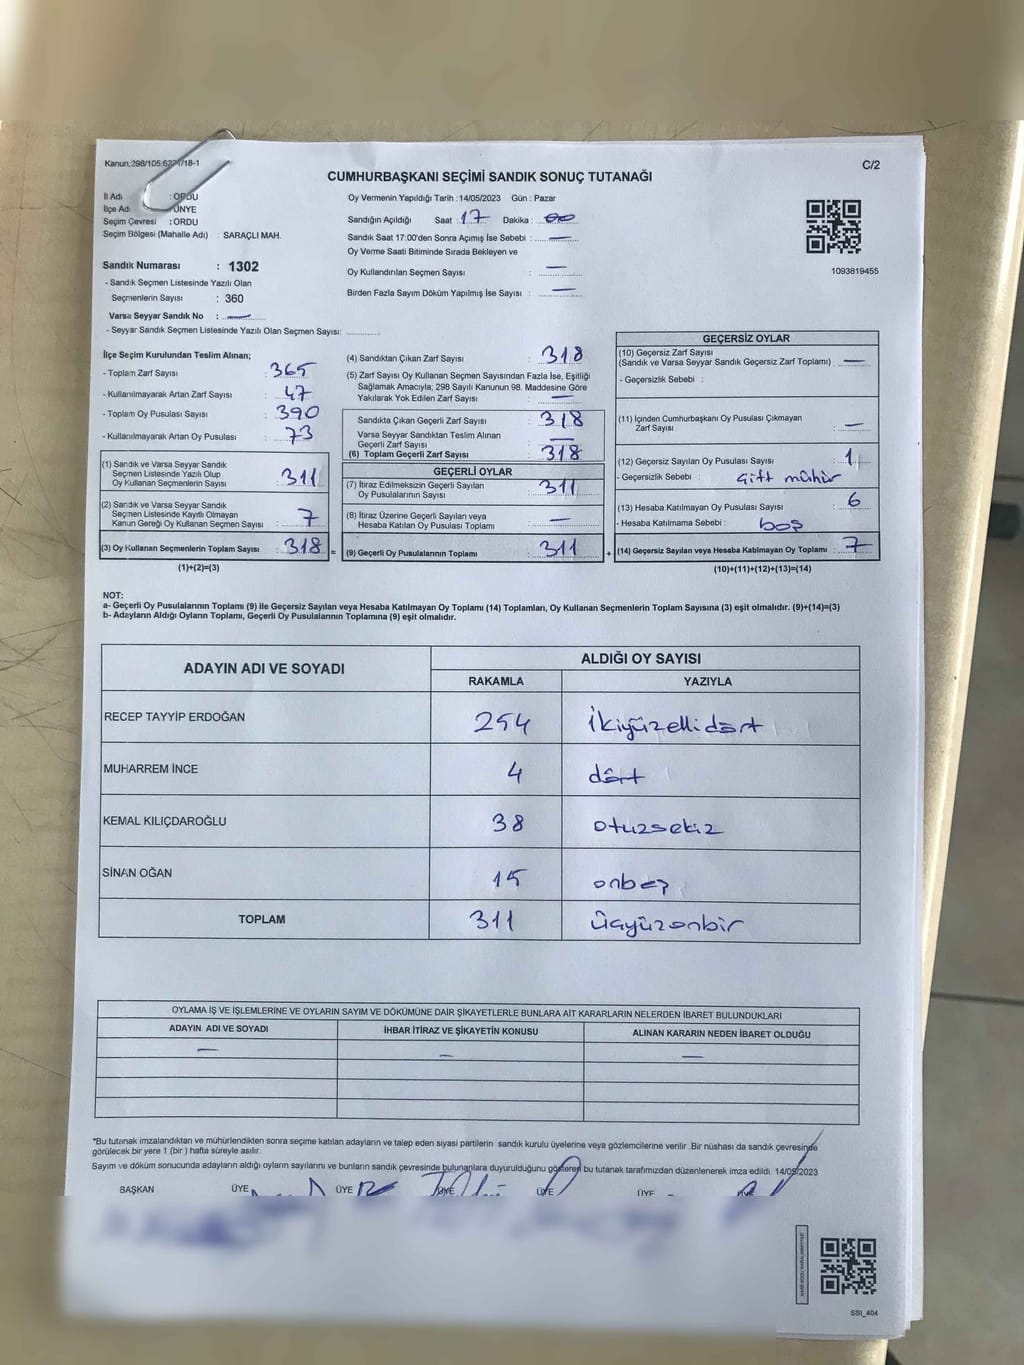 Kanun:298/105;6271/18-1
C/2
CUMHURBAŞKANI SEÇİMİ SANDIK SONUÇ TUTANAĞI
İl Adı : ORDU
İlçe Adı : ÜNYE
Seçim Çevresi : ORDU
Seçim Bölgesi (Mahalle Adı) : SARAÇLI MAH.
Sandık Numarası : 1302
- Sandık Seçmen Listesinde Yazılı Olan
Seçmenlerin Sayısı : 360
Varsa Seyyar Sandık No : —
- Seyyar Sandık Seçmen Listesinde Yazılı Olan Seçmen Sayısı: ............
Oy Vermenin Yapıldığı Tarih : 14/05/2023 Gün : Pazar
Sandığın Açıldığı Saat : 17 Dakika : 00
Sandık Saat 17:00'den Sonra Açımış İse Sebebi : —
Oy Verme Saati Bitiminde Sırada Bekleyen ve
Oy Kullandırılan Seçmen Sayısı : —
Birden Fazla Sayım Döküm Yapılmış İse Sayısı : —
1093819455
İlçe Seçim Kurulundan Teslim Alınan;
- Toplam Zarf Sayısı : 365
- Kullanılmayarak Artan Zarf Sayısı : 47
- Toplam Oy Pusulası Sayısı : 390
- Kullanılmayarak Artan Oy Pusulası : 73
(1) Sandık ve Varsa Seyyar Sandık
Seçmen Listesinde Yazılı Olup
Oy Kullanan Seçmenlerin Sayısı : 311
(2) Sandık ve Varsa Seyyar Sandık
Seçmen Listesinde Kayıtlı Olmayan
Kanun Gereği Oy Kullanan Seçmen Sayısı : 7
(3) Oy Kullanan Seçmenlerin Toplam Sayısı : 318 =
(1)+(2)=(3)
(4) Sandıktan Çıkan Zarf Sayısı : 318
(5) Zarf Sayısı Oy Kullanan Seçmen Sayısından Fazla İse, Eşitliği
Sağlamak Amacıyla; 298 Sayılı Kanunun 98. Maddesine Göre
Yakılarak Yok Edilen Zarf Sayısı : —
Sandıkta Çıkan Geçerli Zarf Sayısı : 318
Varsa Seyyar Sandıktan Teslim Alınan
Geçerli Zarf Sayısı : —
(6) Toplam Geçerli Zarf Sayısı : 318
GEÇERLİ OYLAR
(7) İtiraz Edilmeksizin Geçerli Sayılan
Oy Pusulalarının Sayısı : 311
(8) İtiraz Üzerine Geçerli Sayılan veya
Hesaba Katılan Oy Pusulası Toplamı : —
(9) Geçerli Oy Pusulalarının Toplamı : 311 +
GEÇERSİZ OYLAR
(10) Geçersiz Zarf Sayısı
(Sandık ve Varsa Seyyar Sandık Geçersiz Zarf Toplamı) : —
- Geçersizlik Sebebi :
(11) İçinden Cumhurbaşkanı Oy Pusulası Çıkmayan
Zarf Sayısı : —
(12) Geçersiz Sayılan Oy Pusulası Sayısı : 1
- Geçersizlik Sebebi : Çift mühür
(13) Hesaba Katılmayan Oy Pusulası Sayısı : 6
- Hesaba Katılmama Sebebi : boş
(14) Geçersiz Sayılan veya Hesaba Katılmayan Oy Toplamı : 7
(10)+(11)+(12)+(13)=(14)
NOT:
a- Geçerli Oy Pusulalarının Toplamı (9) ile Geçersiz Sayılan veya Hesaba Katılmayan Oy Toplamı (14) Toplamları, Oy Kullanan Seçmenlerin Toplam Sayısına (3) eşit olmalıdır. (9)+(14)=(3)
b- Adayların Aldığı Oyların Toplamı, Geçerli Oy Pusulalarının Toplamına (9) eşit olmalıdır.
ADAYIN ADI VE SOYADI ALDIĞI OY SAYISI
RAKAMLA YAZIYLA
RECEP TAYYİP ERDOĞAN 254 İkiyüzellidört
MUHARREM İNCE 4 dört
KEMAL KILIÇDAROĞLU 38 otuzsekiz
SİNAN OĞAN 15 onbeş
TOPLAM 311 Üçyüzonbir
OYLAMA İŞ VE İŞLEMLERİNE VE OYLARIN SAYIM VE DÖKÜMÜNE DAİR ŞİKAYETLERLE BUNLARA AİT KARARLARIN NELERDEN İBARET BULUNDUKLARI
ADAYIN ADI VE SOYADI İHBAR İTİRAZ VE ŞİKAYETİN KONUSU ALINAN KARARIN NEDEN İBARET OLDUĞU
— — —
*Bu tutanak imzalandıktan ve mühürlendikten sonra seçime katılan adayların ve talep eden siyasi partilerin sandık kurulu üyelerine veya gözlemcilerine verilir .Bir nüshası da sandık çevresinde
görülecek bir yere 1 (bir ) hafta süreyle asılır.
Sayım ve döküm sonucunda adayların aldığı oyların sayılarını ve bunların sandık çevresinde bulunanlara duyurulduğunu gösteren bu tutanak tarafımızdan düzenlenerek imza edildi. 14/05/2023
BAŞKAN ÜYE ÜYE ÜYE ÜYE ÜYE ÜYE
SSI_404